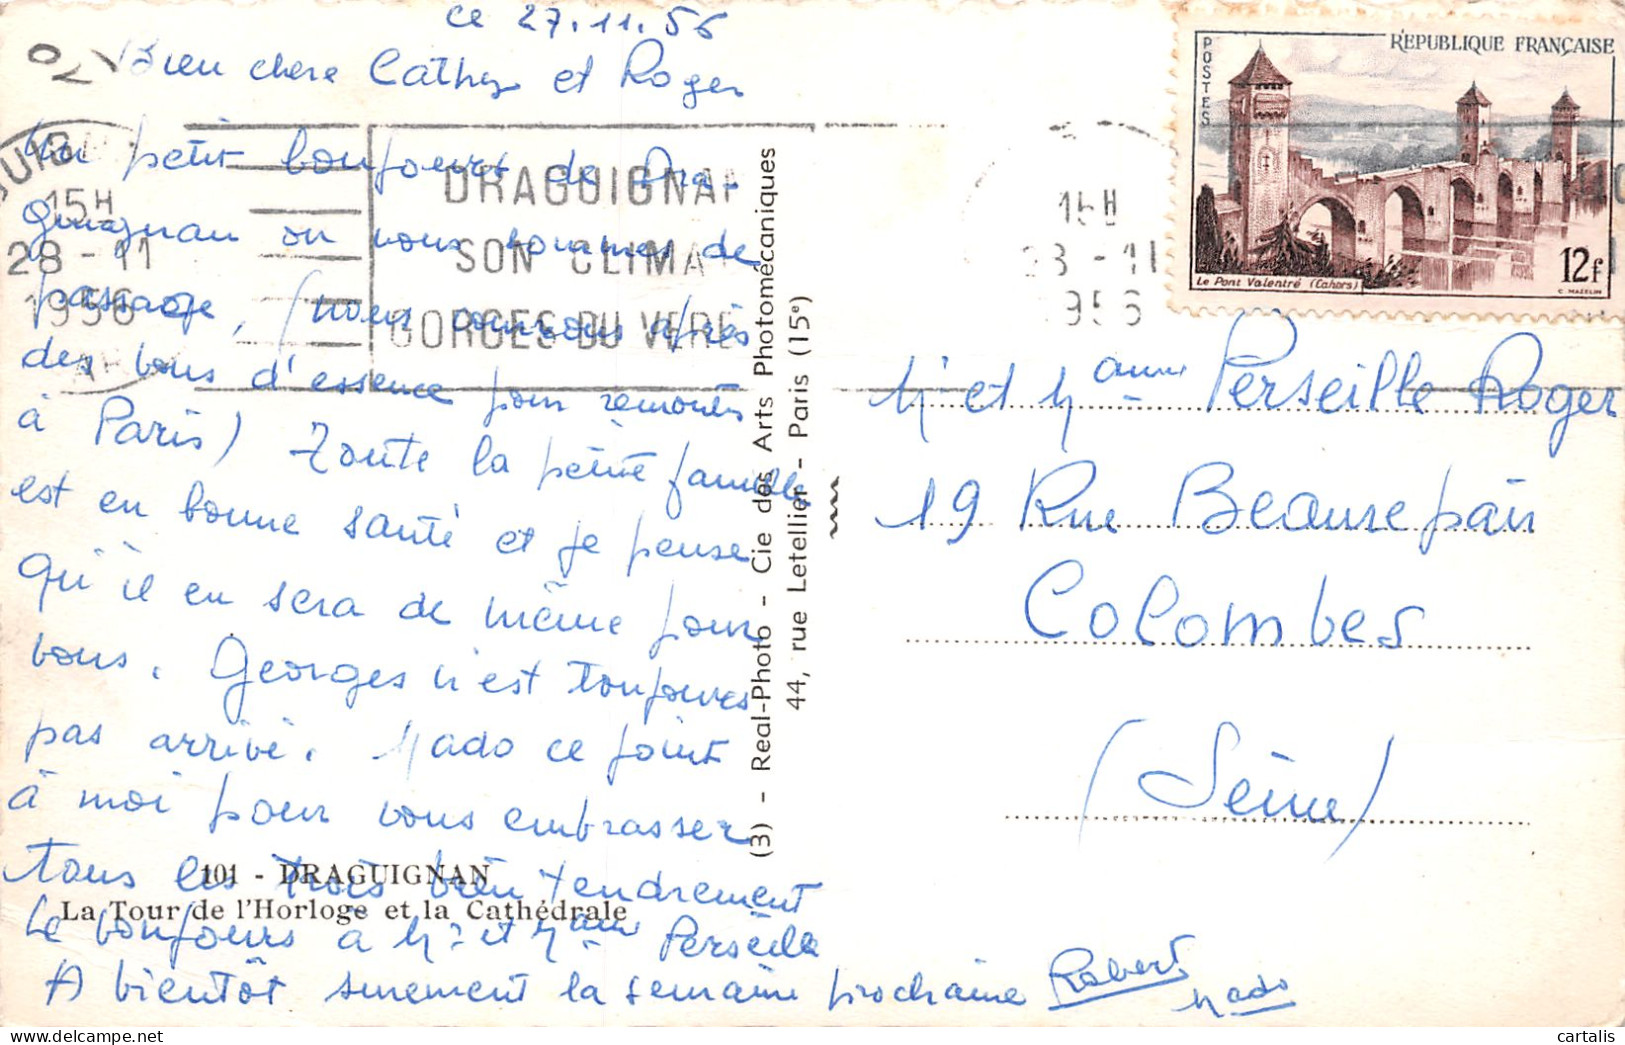 ce 27.11.56
Bien chere Cathy et Roger
Un petit bonjours de Dra-
guignan ou nous sommes de
passage, (nous courrons après
des bons d'essence pour remontés
à Paris) Toute la petite famille
est en bonne santé et je pense
qu'il en sera de même pour
vous. Georges n'est toujours
pas arrivé. Mado ce joint
à moi pour vous embrasser
tous les trois bien tendrement
Le bonjours à Mr et Mame Perseille
A bientôt surement la semaine prochaine Robert
Mado
101 - DRAGUIGNAN
La Tour de l'Horloge et la Cathédrale
15H
28-11
1956
DRAGUIGNAN
SON CLIMA
GORGES DU VERD
(3) - Real-Photo - Cie des Arts Photomécaniques
44, rue Letellier - Paris (15e)
15H
28-11
1956
POSTES
RÉPUBLIQUE FRANÇAISE
Le Pont Valentré (Cahors)
12f
C. MAZELIN
Mr et Mame Perseille Roger
19 Rue Beaurepair
Colombes
(Seine)
cartalis